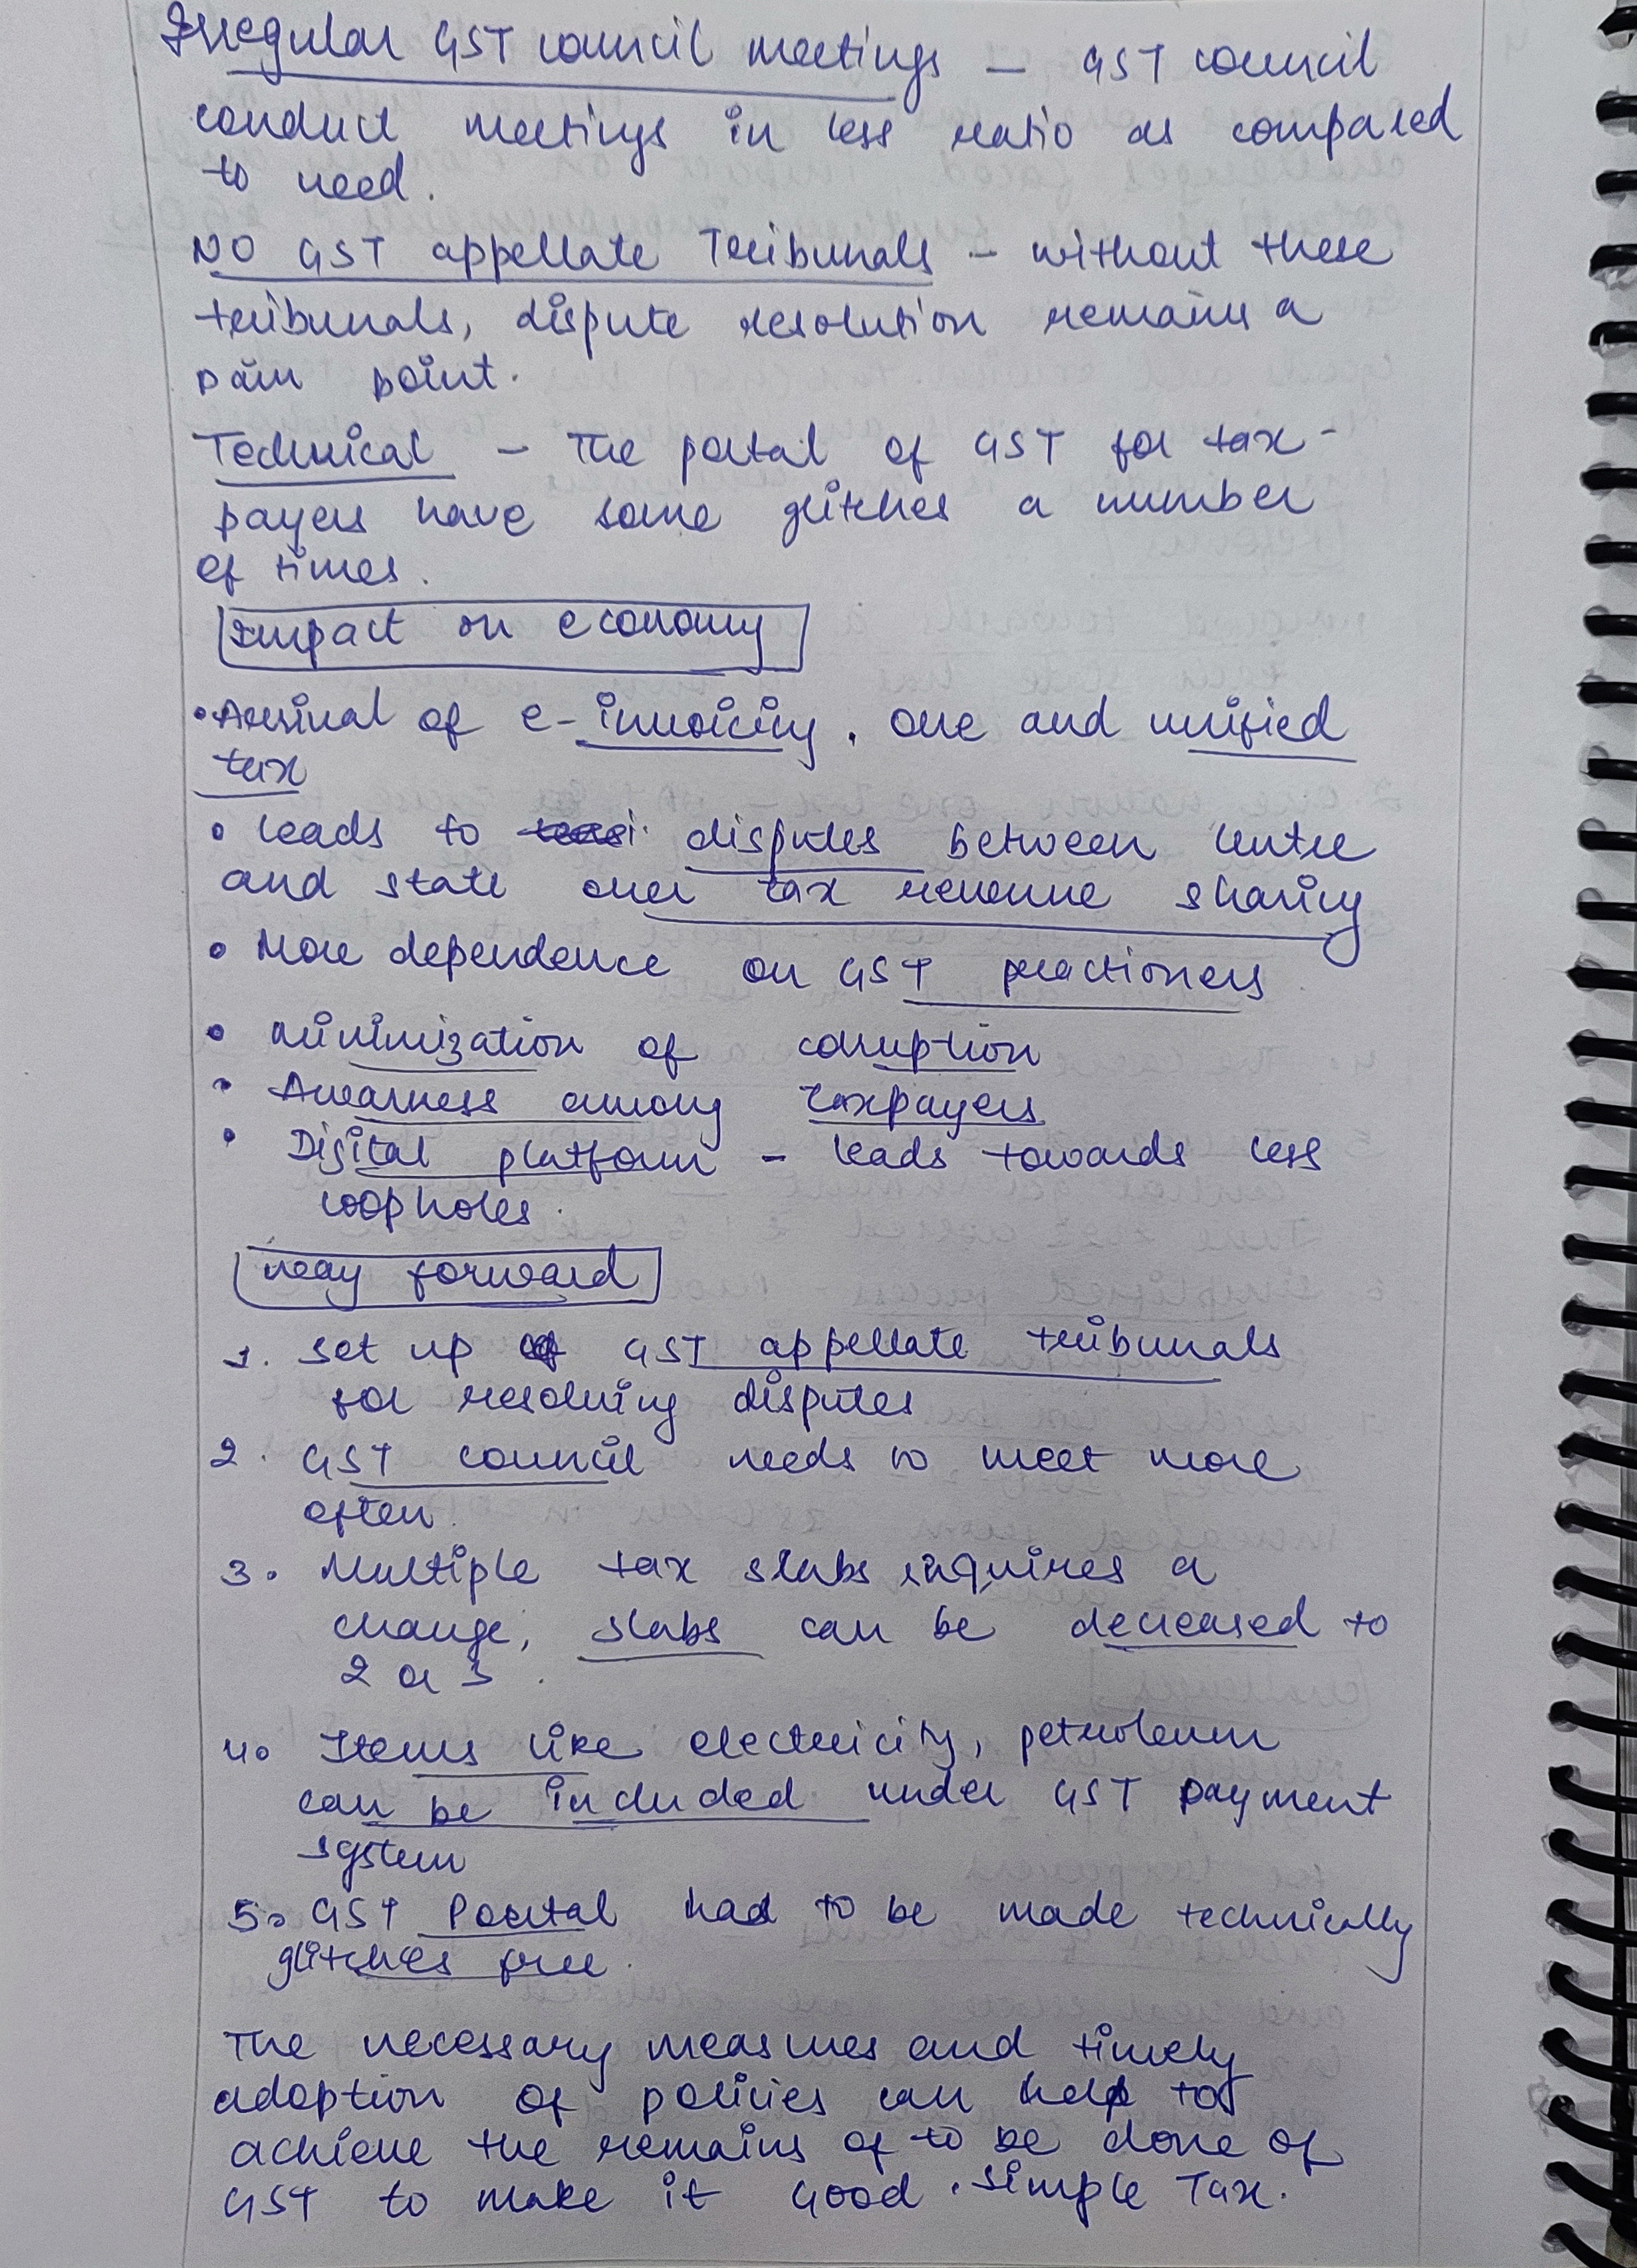 Irregular GST council meetings - GST council
conduct meetings in less ratio as compared
to need.
NO GST appellate Tribunals - without these
tribunals, dispute resolution remains a
pain point.
Technical - The portal of GST for tax-
payers have some glitches a number
of times.
Impact on economy
• Arrival of e-invoicing, one and unified
tax
• leads to disputes between centre
and state over tax revenue sharing
• More dependence on GST practioners
• Minimization of corruption
• Awarness among taxpayers
• Digital platform - leads towards less
loopholes.
way forward
1. set up of GST appellate tribunals
for resolving disputes
2. GST council needs to meet more
often.
3. Multiple tax slabs requires a
change, slabs can be decreased to
2 or 3.
4. Items like electricity, petroleum
can be included under GST payment
system
5. GST Portal had to be made technically
glitches free.
The necessary measures and timely
adoption of policies can help to
achieve the remains of to be done of
GST to make it Good. Simple Tax.